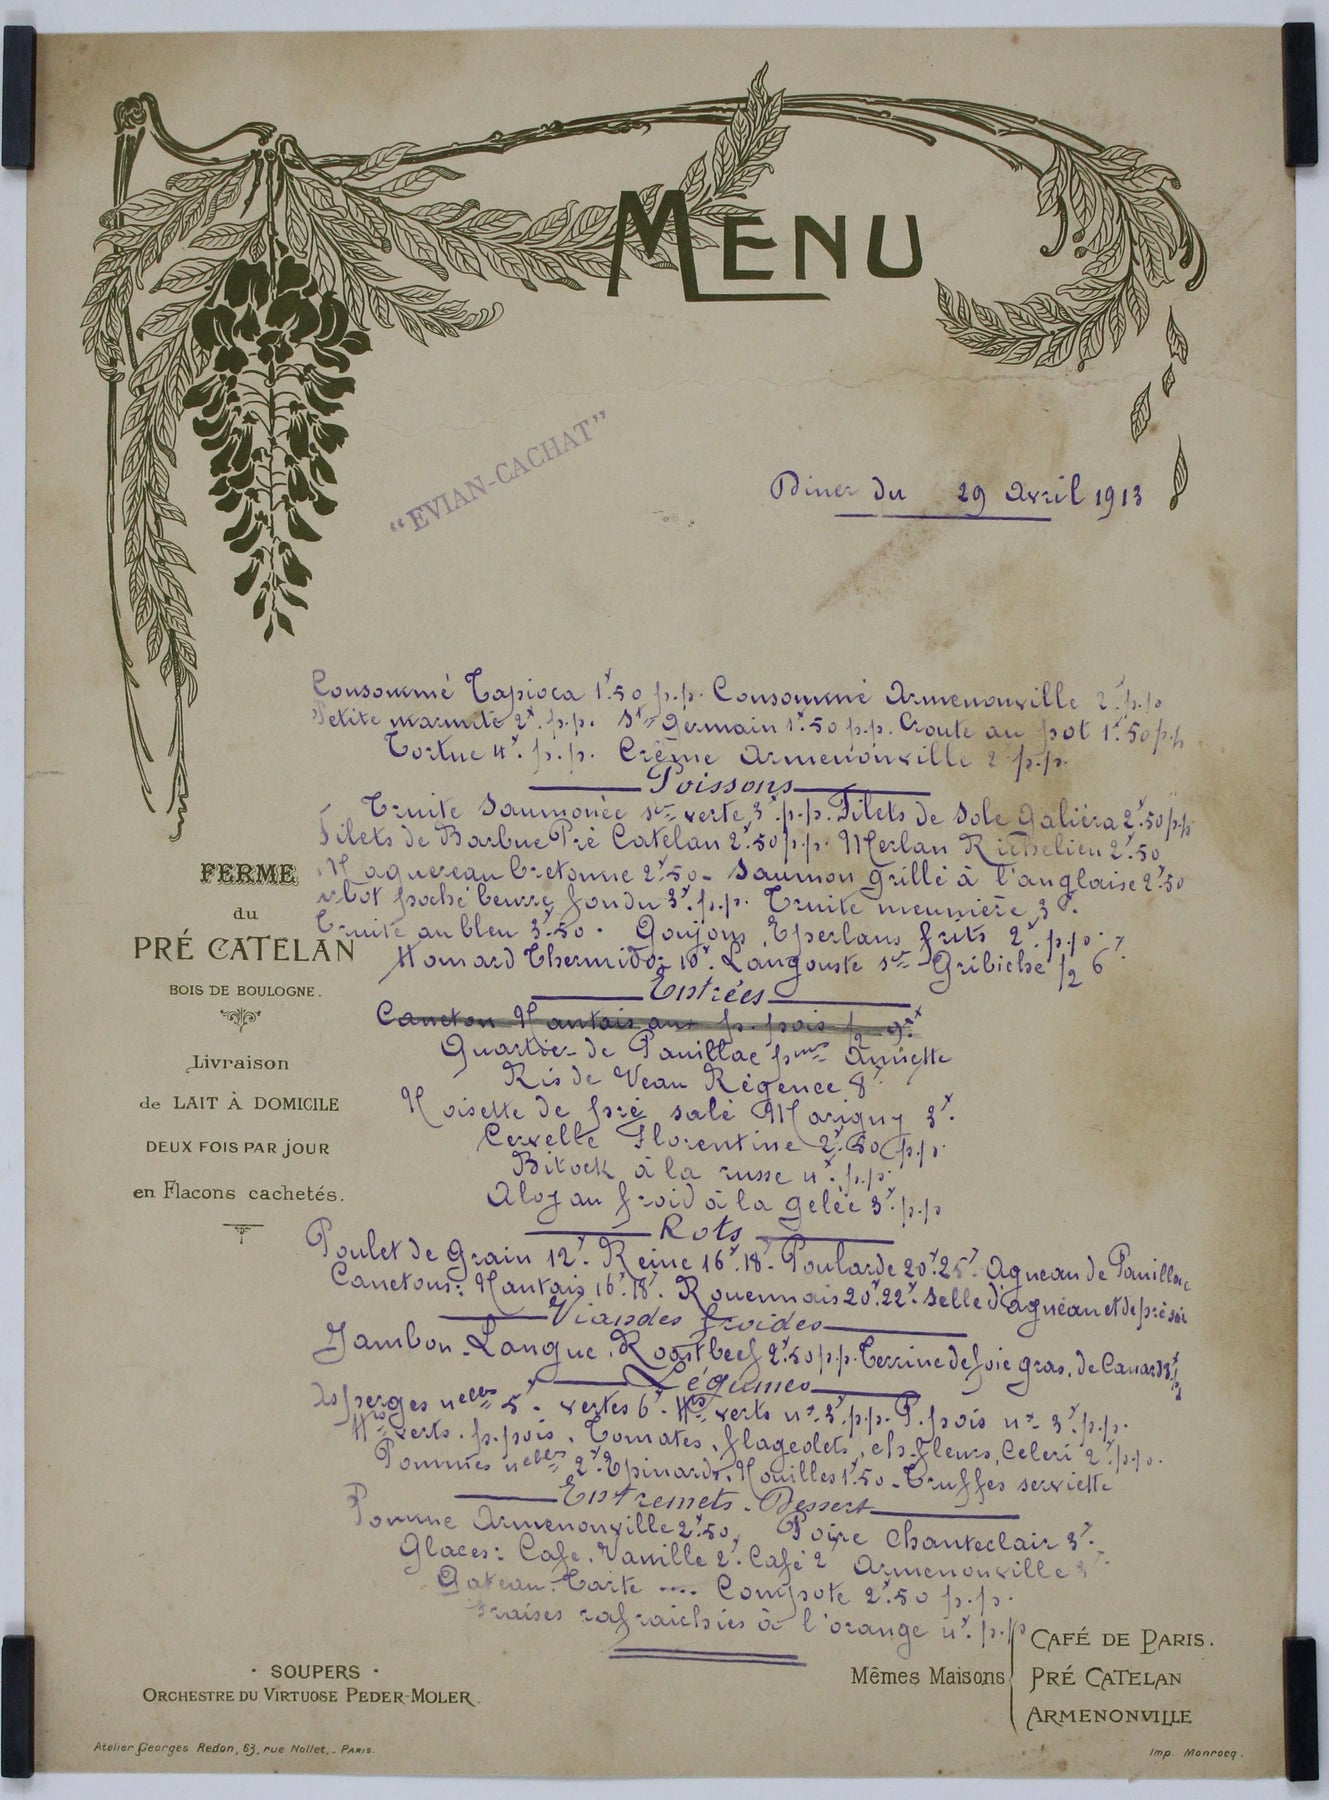 MENU
"EVIAN-CACHAT"
Diner du 29 Avril 1913
Consommé Tapioca 1f.50 p.p. Consommé Armenonville 2f. p.p
Petite marmite 2f. p.p. St Germain 1f.50 p.p. Croute au pot 1f.50 p.p
Tortue 4f. p.p. Crème Armenonville 2 p.p.
Poissons
Truite Saumonée sce verte 3f. p.p. Filets de Sole Galiéra 2f.50 p.p
Filets de Barbue Pré Catelan 2f.50 p.p. Merlan Richelieu 2f.50
Maquereau bretonne 2f.50 - Saumon grillé à l'anglaise 2f.50
rbot poché beurre fondu 3f. p.p. Truite meunière 3f.
Truite au bleu 3f.50 . Goujons, Eperlans frits 2f. p.p.
Homard Thermidor 10f. Langouste sce Gribiche 1/2 6f.
Entrées
Caneton Nantais aux p. pois 1/2 9f
Quartier de Pauillac pmes Annette
Ris de Veau Régence 8f.
Noisette de pré salé Marigny 3f.
Cervelle Florentine 2f.50 p.p.
Bitock à la russe 4f. p.p.
Aloyau froid à la gelée 3f. p.p
Rots
Poulet de Grain 12f. Reine 16f.18f - Poularde 20f.25f. Agneau de Pauillac
Canetons: Nantais 16f.18f. Rouennais 20f.22f. Selle d'agneau et de pré salé
Viandes froides
Jambon - Langue. Roastbeef 2f.50 p.p. Terrine de foie gras, de Canard 3f
Légumes
Asperges nelles 5f. vertes 6f. Hts verts nx 3f. p.p. P. pois nx 3f. p.p.
Hts verts. p. pois. Tomates. flageolets, ch. fleurs, Celeri 2f. p.p.
Pommes nelles 2f. Epinards. Nouilles 1f.50 - Truffes serviette
Entremets - Dessert
Pomme Armenonville 2f.50, Poire Chanteclair 3f.
Glaces: Café. Vanille 2f. Café 2f Armenonville 3f.
Gateau. Tarte .... Compote 2f.50 p.p.
Fraises rafraichies à l'orange 4f. p.p
FERME
du
PRÉ CATELAN
BOIS DE BOULOGNE.
Livraison
de LAIT À DOMICILE
DEUX FOIS PAR JOUR
en Flacons cachetés.
· SOUPERS ·
ORCHESTRE DU VIRTUOSE PEDER-MOLER.
Mêmes Maisons
CAFÉ DE PARIS.
PRÉ CATELAN
ARMENONVILLE
Atelier Georges Redon, 63, rue Nollet, - PARIS.
Imp. Monrocq.